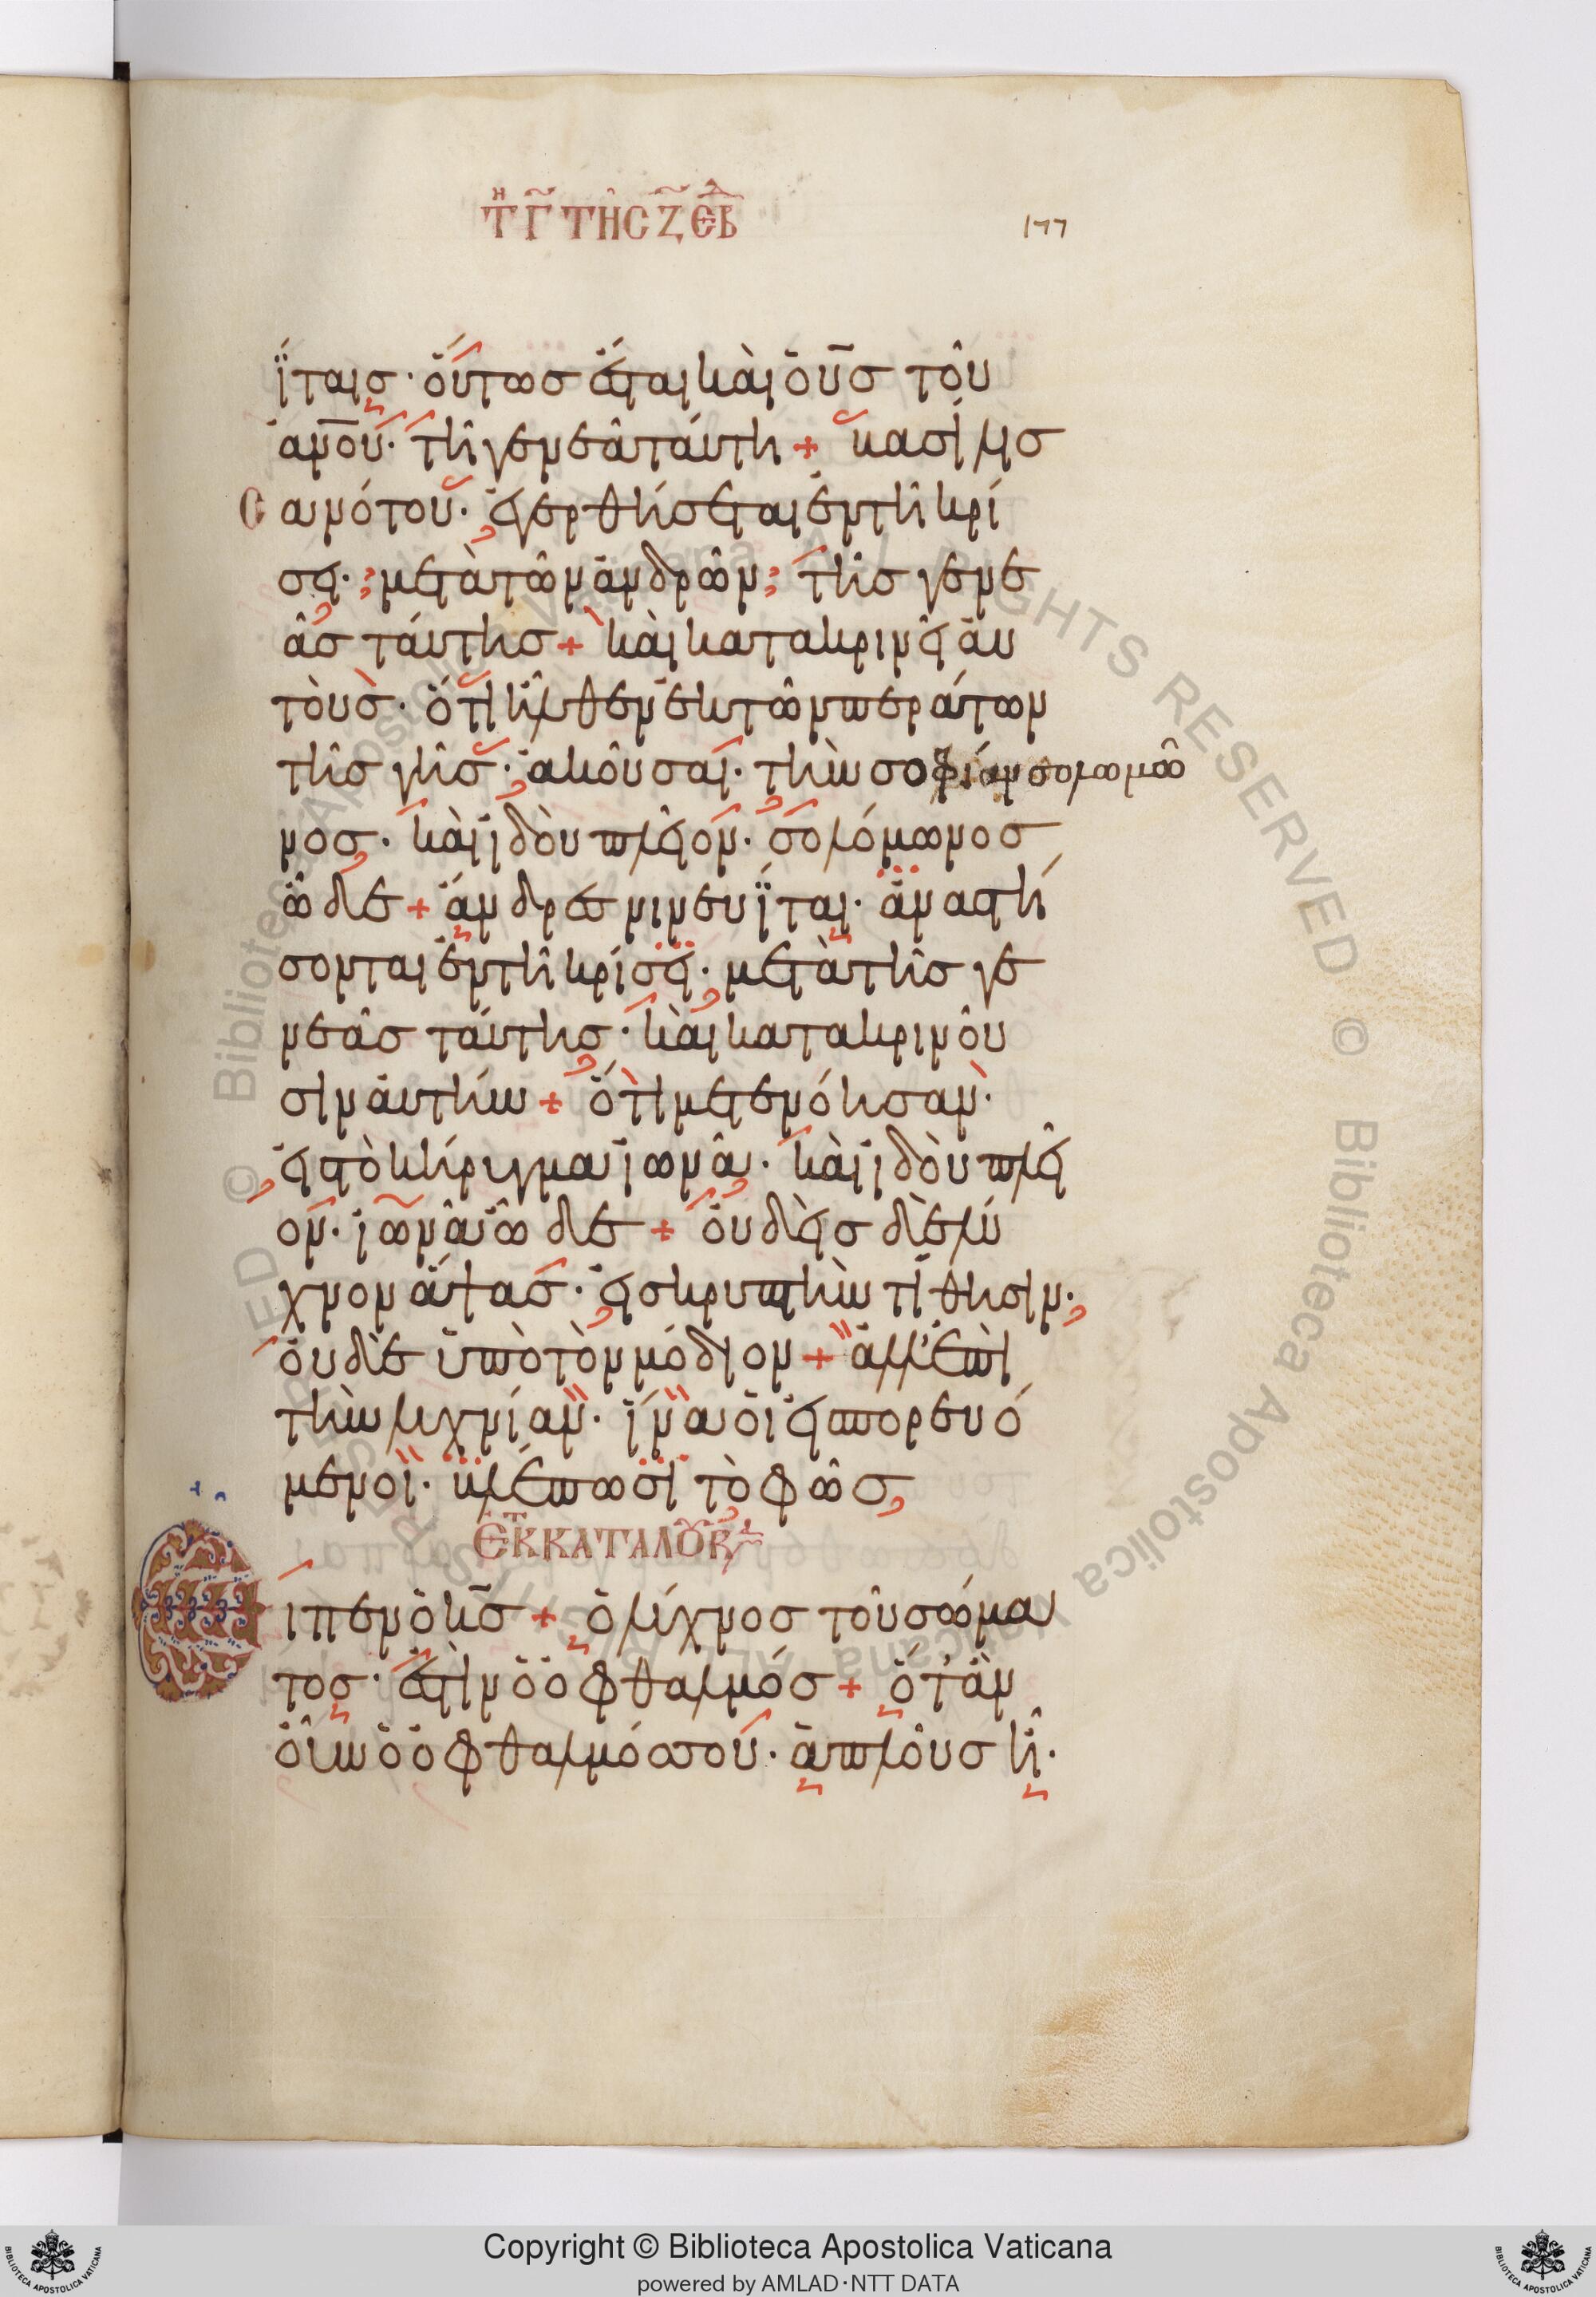 ΤΗ Γ ΤΗС Ζ ΕΒΔ
177
ΐταις· οὕτως ἔσται καὶ ὁ υ̅ς̅ τοῦ
α̅ν̅ο̅υ̅· τῆ γενεᾶ ταύτη + βασίλισ
σα νότου· ἐγερθήσεται ἐν τῆ κρί
σει· μετὰ τῶν ἀνδρῶν τῆς γενε
ᾶς ταύτης + καὶ κατακρινεῖ αὐ
τοὺς· ὅτι ἦλθεν ἐκ τῶν περάτων
τῆς γῆς· ἀκοῦσαι· τὴν σοφίαν σολομῶ
νος· καὶ ἰδοὺ πλεῖον· σολόμωνος
ὧδε + ἄνδρες νινευΐται· ἀναστή
σονται ἐν τῆ κρίσει· μετὰ τῆς γε
νεᾶς ταύτης· καὶ κατακρινοῦ
σιν αὐτήν + ὅτι μετενόησαν·
εἰς τὸ κήρυγμα ἰωνᾶ· καὶ ἰδοὺ πλεῖ
ον· ἰωνᾶ ὧδε + οὐδεὶς δὲ λύ
χνον ἅψας· εἰς κρυπτὴν τίθησιν·
οὐδὲ ὑπὸ τὸν μόδιον + ἀλλ' ἐπὶ
τὴν λυχνίαν· ἵνα οἱ εἰσπορευό
μενοι· βλέπωσι τὸ φῶς
ΕΚ ΤΟΥ ΚΑΤΑ ΛΟΥΚ
Ειπεν ὁ κ̅ς̅ + ὁ λύχνος τοῦ σώμα
τος· ἐστὶν ὁ ὀφθαλμός + ὅταν
οὖν ὁ ὀφθαλμός σου· ἁπλοῦς ἦ·
Copyright © Biblioteca Apostolica Vaticana
powered by AMLAD·NTT DATA